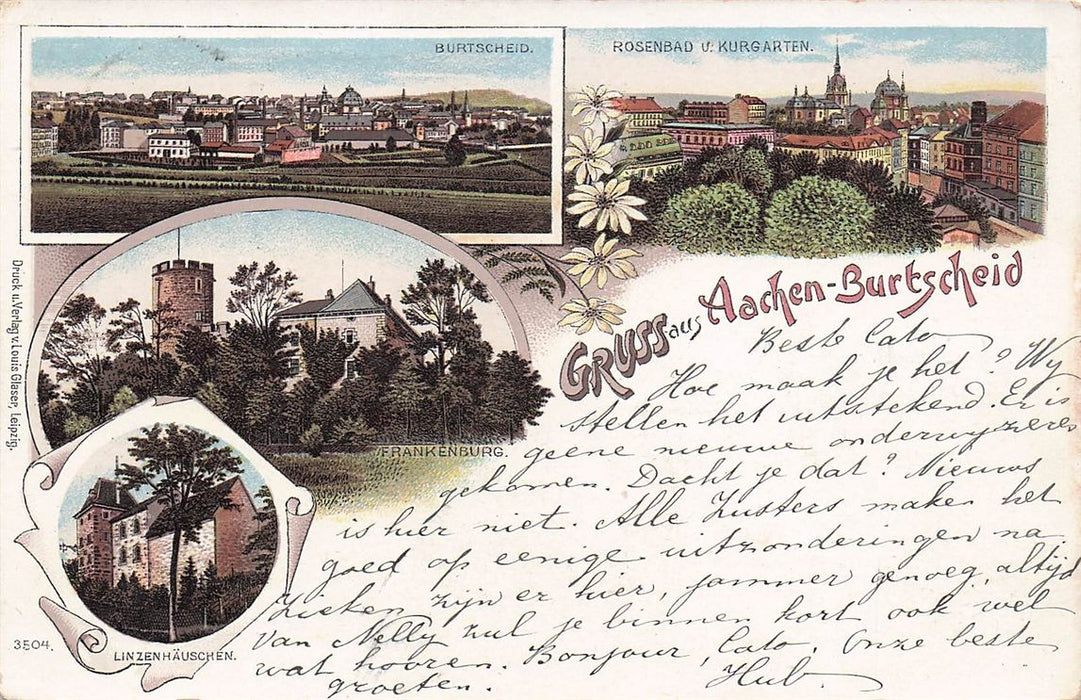 BURTSCHEID.
ROSENBAD U. KURGARTEN.
FRANKENBURG.
LINZENHÄUSCHEN.
3504.
Druck u. Verlag v. Louis Glaser, Leipzig.
GRUSS aus Aachen-Burtscheid
Beste Cato
Hoe maak je het? Wy
stellen het uitstekend. Er is
geene nieuwe onderwyzeres
gekomen. Dacht je dat? Nieuws
is hier niet. Alle Zusters maken het
goed op eenige uitzonderingen na.
Zieken zijn er hier, jammer genoeg, altijd
Van Nelly zul je binnen kort ook wel
wat hooren. Bonjour, Cato. Onze beste
groeten. Hub.